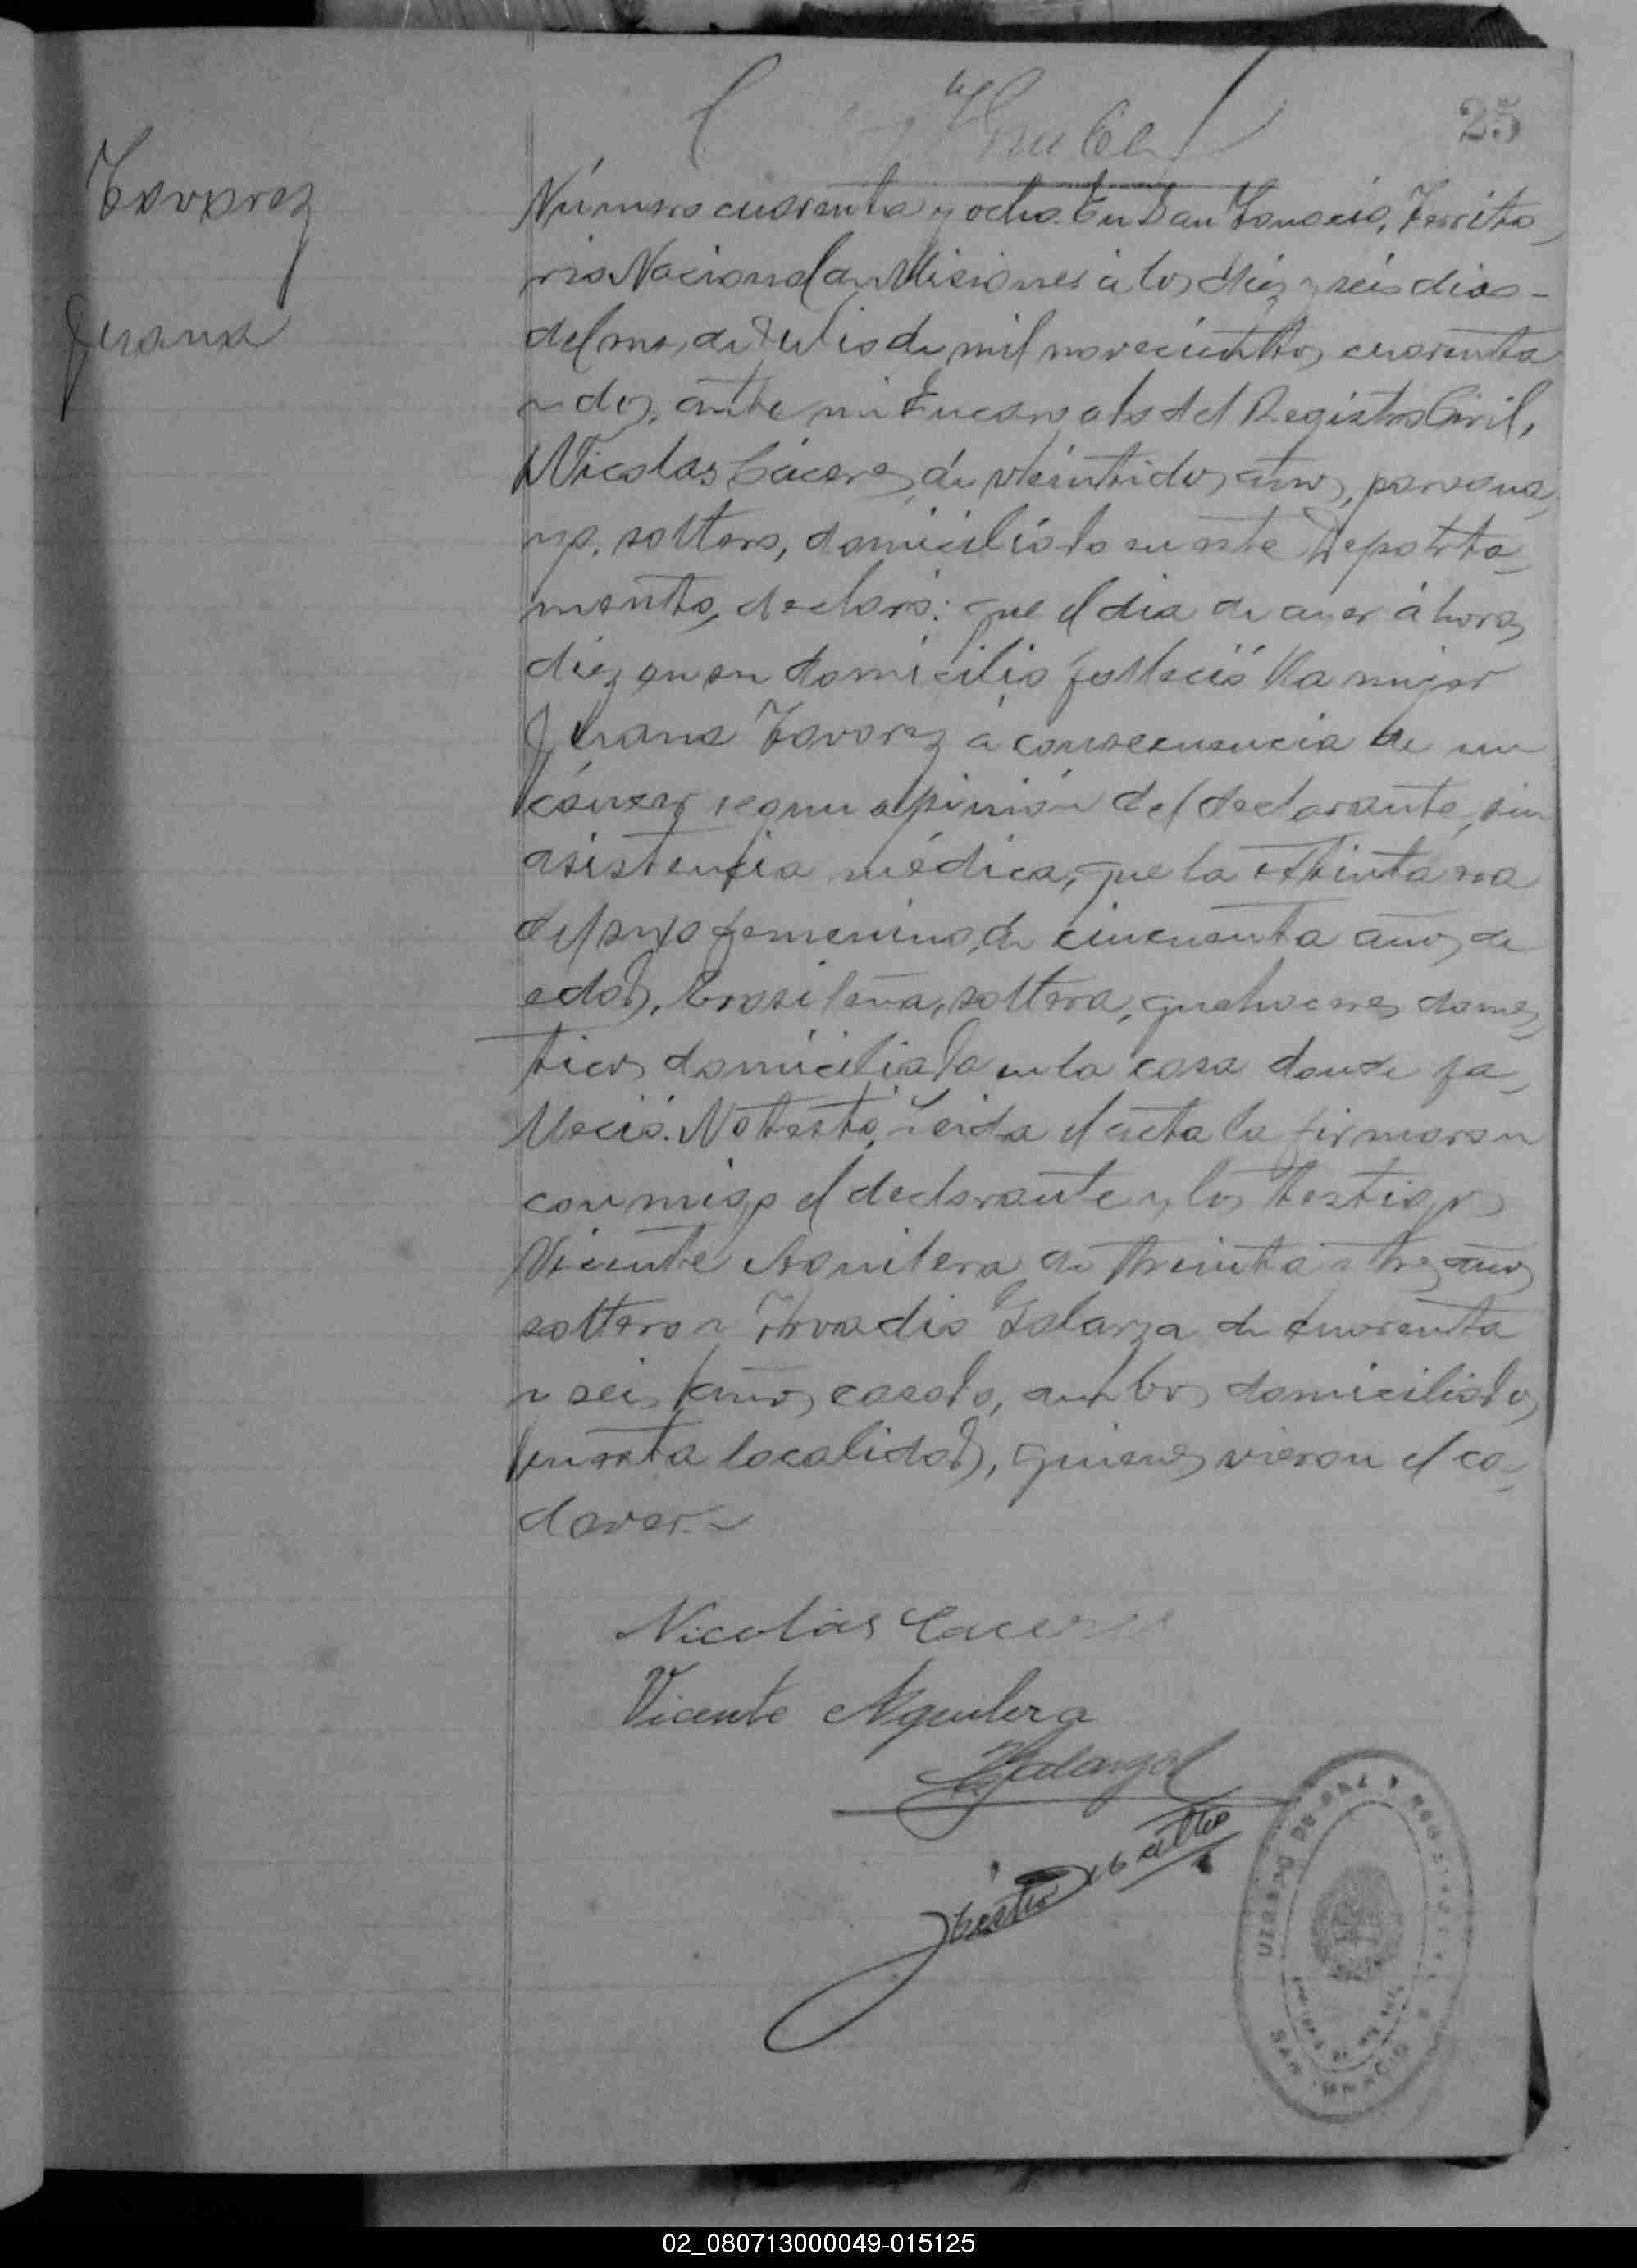 25
Tavarez
Juana
Número cuarenta y ocho. En San Ignacio, Territo-
rio Nacional de Misiones à los diez y seis dias-
del mes de Julio de mil novecientos cuarenta
y dos, ante mi Encargado del Registro Civil,
Nicolas Cáceres, de veintidos años, paragua-
yo, soltero, domiciliado en este Departa-
mento, declaró: que el dia de ayer á horas
diez en su domicilio falleció la mujer
Juana Tavarez á consecuencia de un
cáncer segun opinión del declarante, sin
asistencia médica, que la extinta era
del sexo femenino, de cincuenta años de
edad, brasileña, soltera, quehaceres domes-
ticos domiciliada en la casa donde fa-
lleció. No testó, Leida el acta la firmaron
conmigo el declarante y los testigos
Vicente Aguilera de treinta y tres años
soltero y Galarza de cuarenta
y seis años, casado, ambos domiciliados
en esta localidad, quienes vieron el ca-
daver.
Nicolás Caceres
Vicente Aguilera
Galarza
JUZGADO DE PAZ Y REGISTRO CIVIL
SAN IGNACIO
02_080713000049-015125